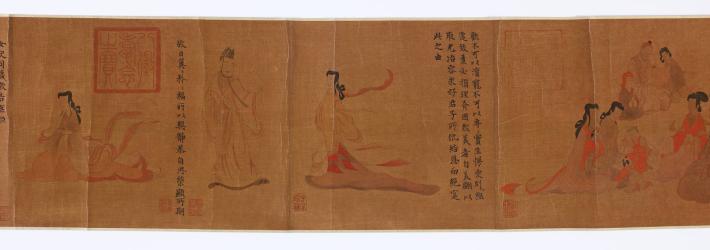 歡不可以瀆寵不可以專實生慢愛極則
遷致盈必損理有固然美者自美翩以
取尤冶容求好君子所讎結恩而絕寔
此之由
故曰翼矜矜福所以興靜恭自思榮顯所期
女史司箴敢告庶姬